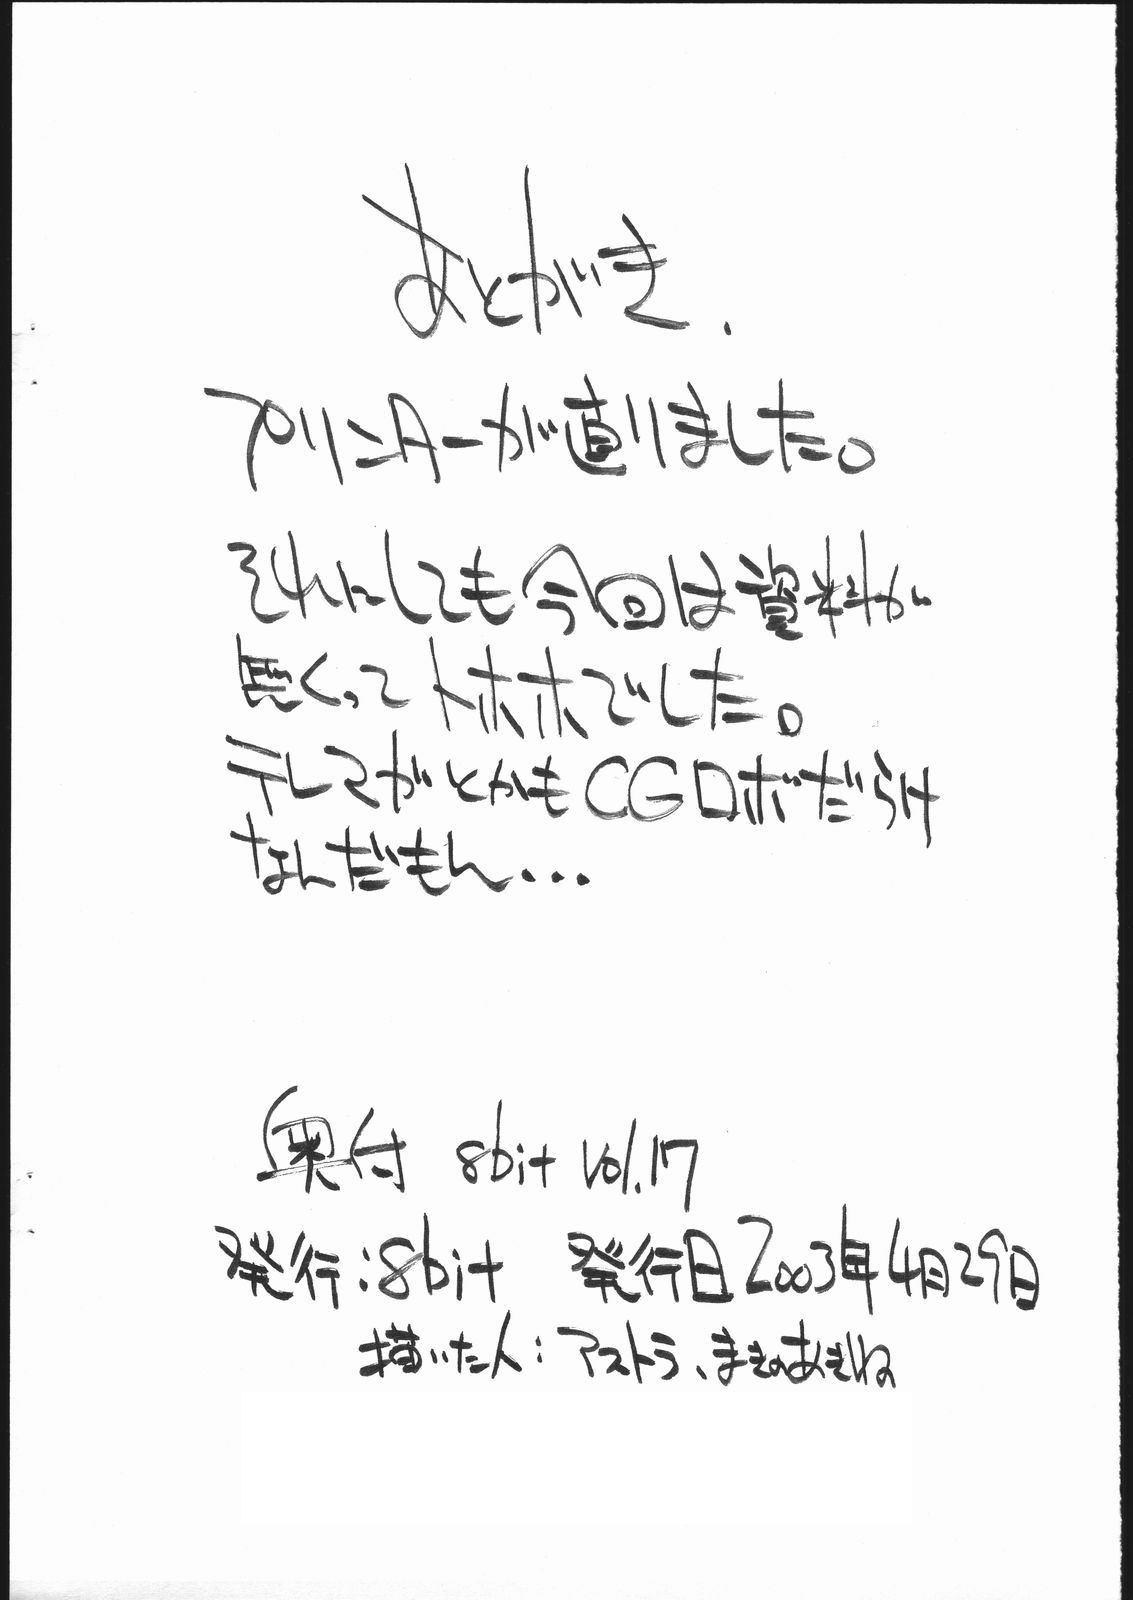 あとがき.
プリンターが直りました。
それにしても今回は資料が
悪くってトホホでした。
テレマガとかもCGロボだらけ
なんだもん...
奥付 8bit vol.17
発行:8bit 発行日2003年4月29日
描いた人:アストラ、まきのあきね